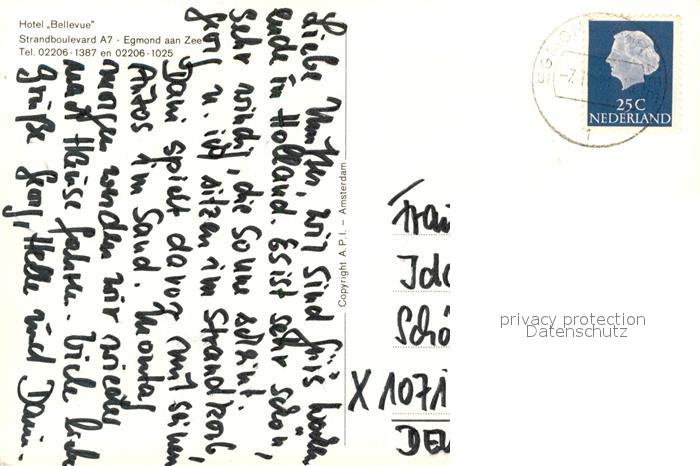 Hotel „Bellevue"
Strandboulevard A7 - Egmond aan Zee
Tel. 02206-1387 en 02206-1025
Liebe, wir sind fürs Wochen
ende in Holland. Es ist sehr schön,
sehr windig, die Sonne scheint.
Georg u. ich sitzen im Strandkorb,
Dani spielt davor mit seinen
Autos im Sand. Montag
morgen werden wir wieder
nach Hause fahren. Viele liebe
Grüße Georg, Helle und Dani.
Copyright A.P.I. - Amsterdam
EGMOND
25 C
NEDERLAND
Frau
Schö
X 1071
privacy protection
Datenschutz